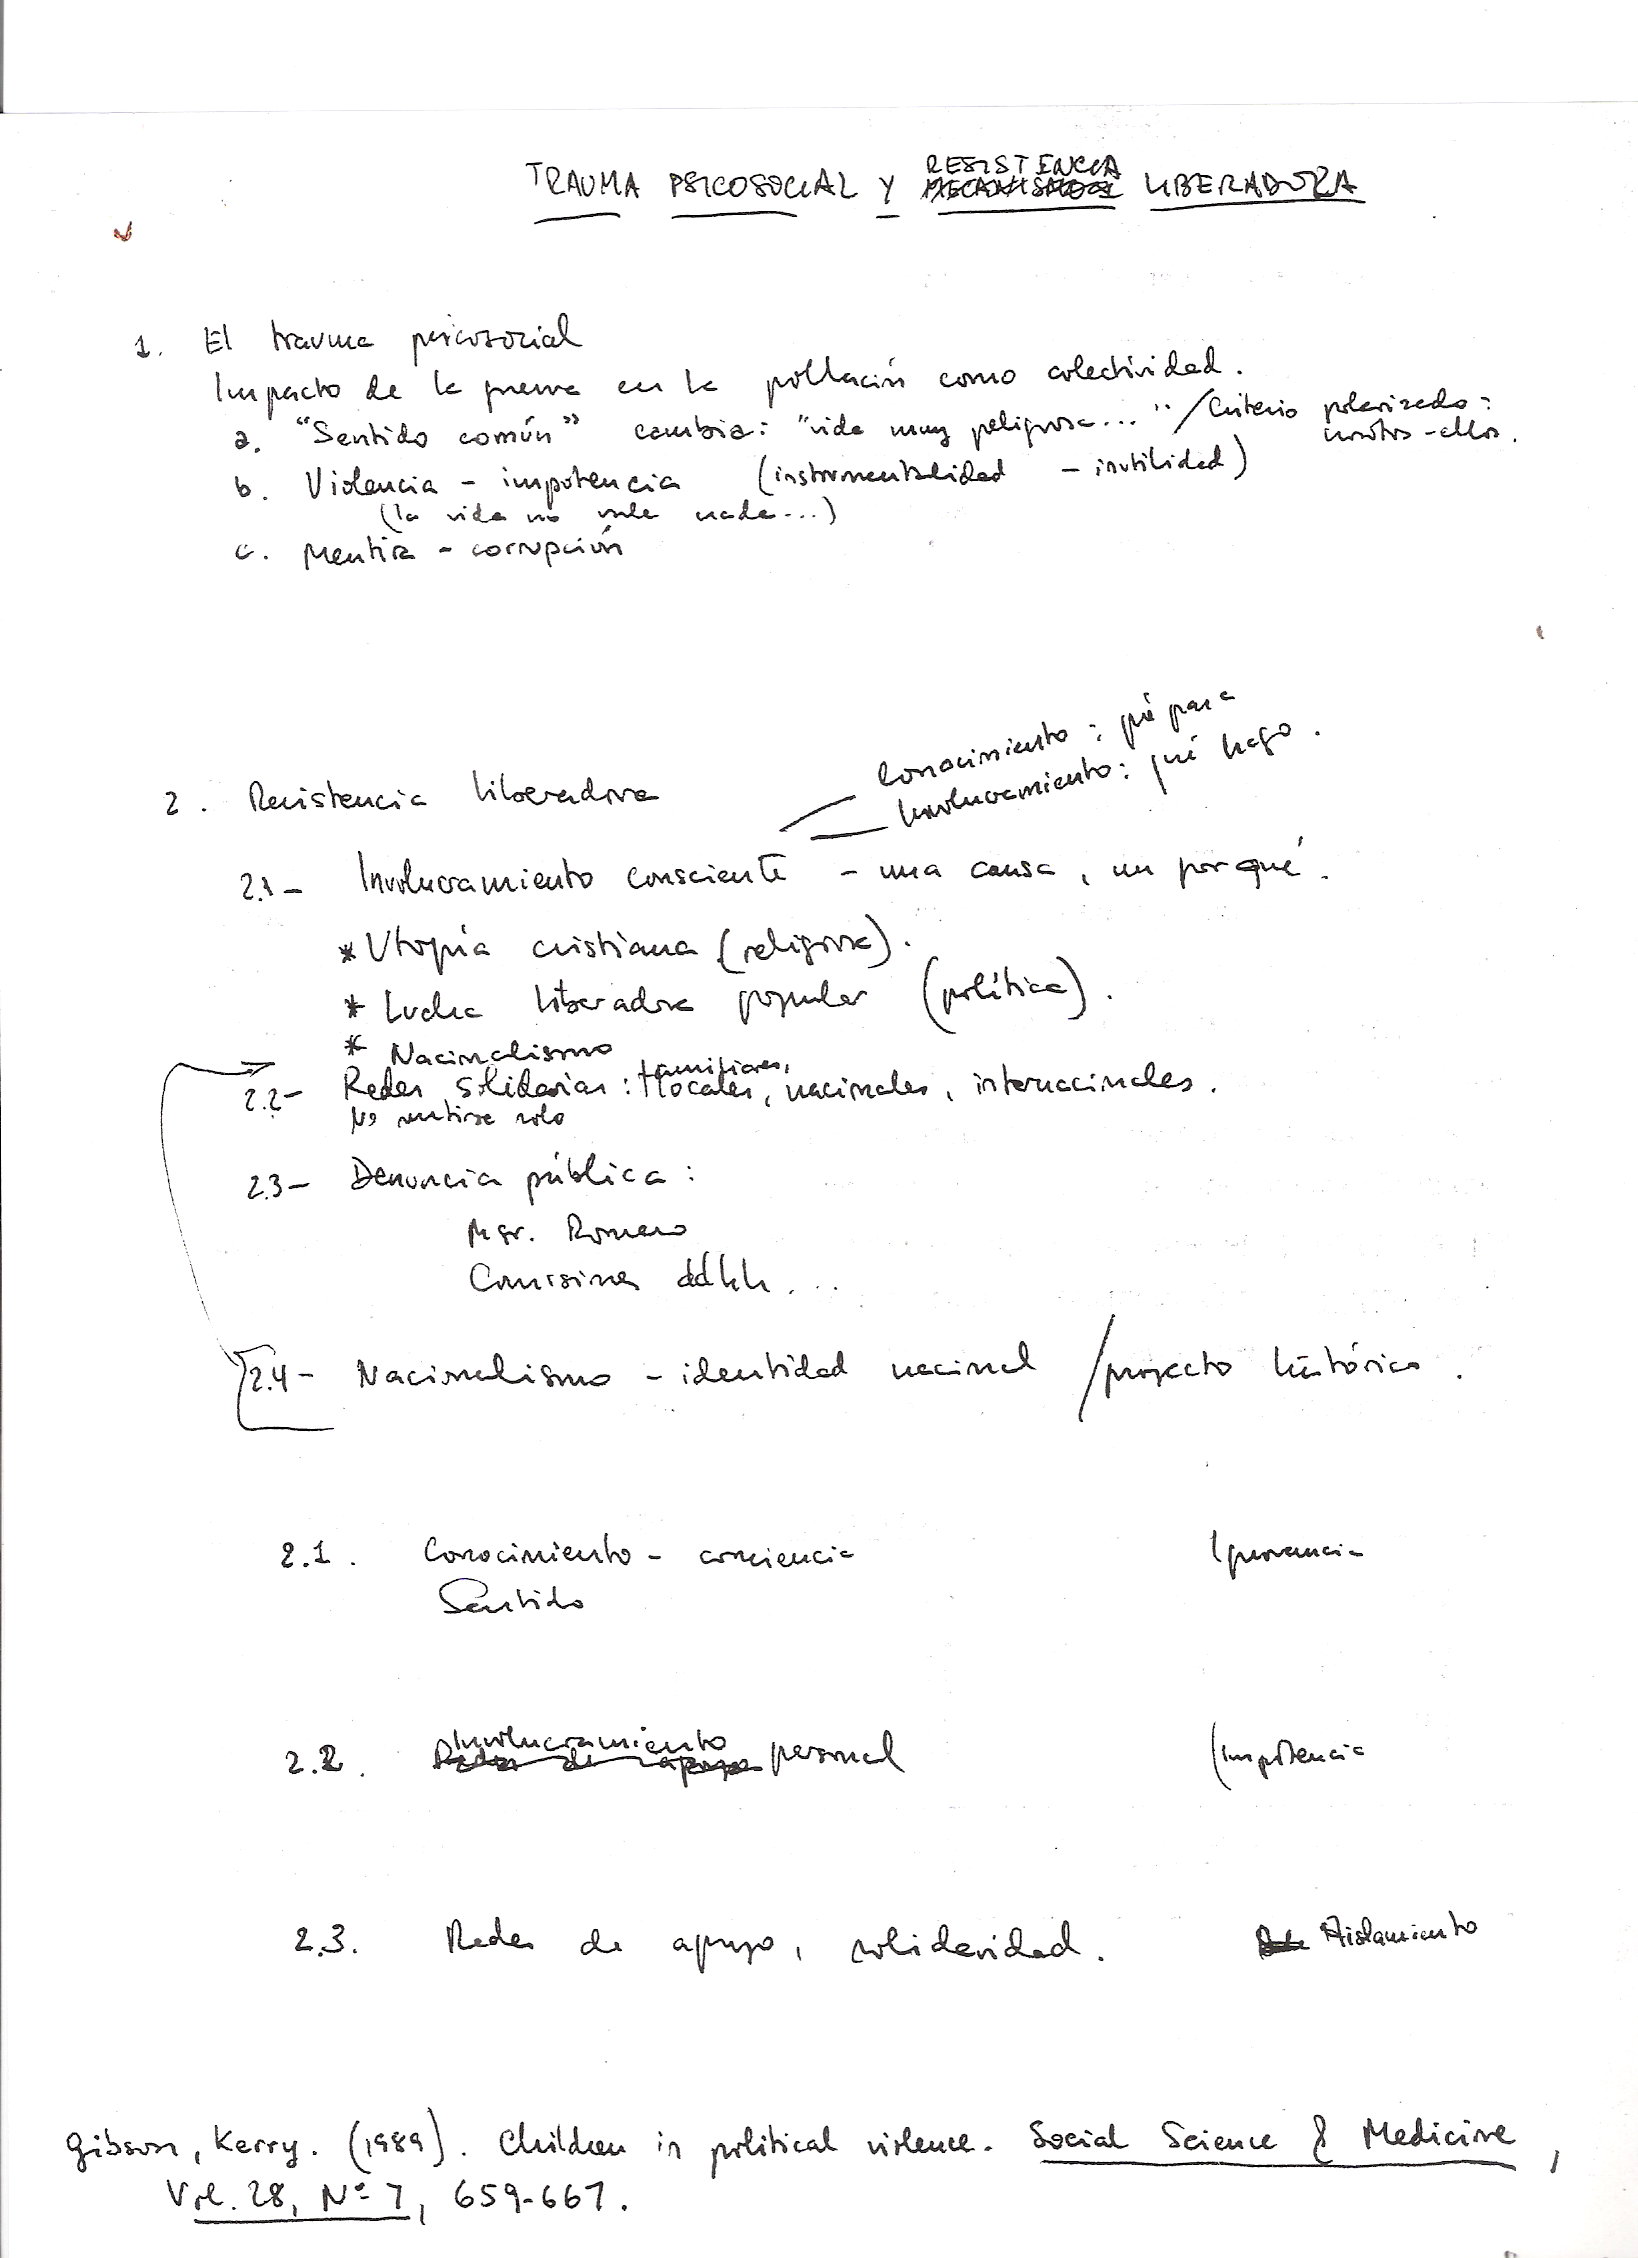 TRAUMA PSICOSOCIAL Y RESISTENCIA LIBERADORA
1. El trauma psicosocial
Impacto de la guerra en la población como colectividad.
a. "Sentido común" cambia: "vida muy peligrosa..." / Criterio polarizado:
nosotros - ellos.
b. Violencia - impotencia (instrumentalidad - inutilidad)
(la vida no vale nada...)
c. Mentira - corrupción
2. Resistencia liberadora
Conocimiento: qué pasa
Involucramiento: qué hago.
2.1- Involucramiento consciente - una causa, un por qué.
* Utopía cristiana (religiosa).
* Lucha liberadora popular (política).
* Nacionalismo
2.2- Redes solidarias: familiares, locales, nacionales, internacionales.
No sentirse solo
2.3- Denuncia pública:
Msr. Romero
Comisiones ddhh...
2.4- Nacionalismo - identidad nacional / proyecto histórico.
2.1. Conocimiento - conciencia Ignorancia
Sentido
2.2. Involucramiento personal Impotencia
Redes de apoyo
2.3. Redes de apoyo, solidaridad. Aislamiento
Gibson, Kerry. (1989). Children in political violence. Social Science & Medicine,
Vol. 28, Nº 7, 659-667.